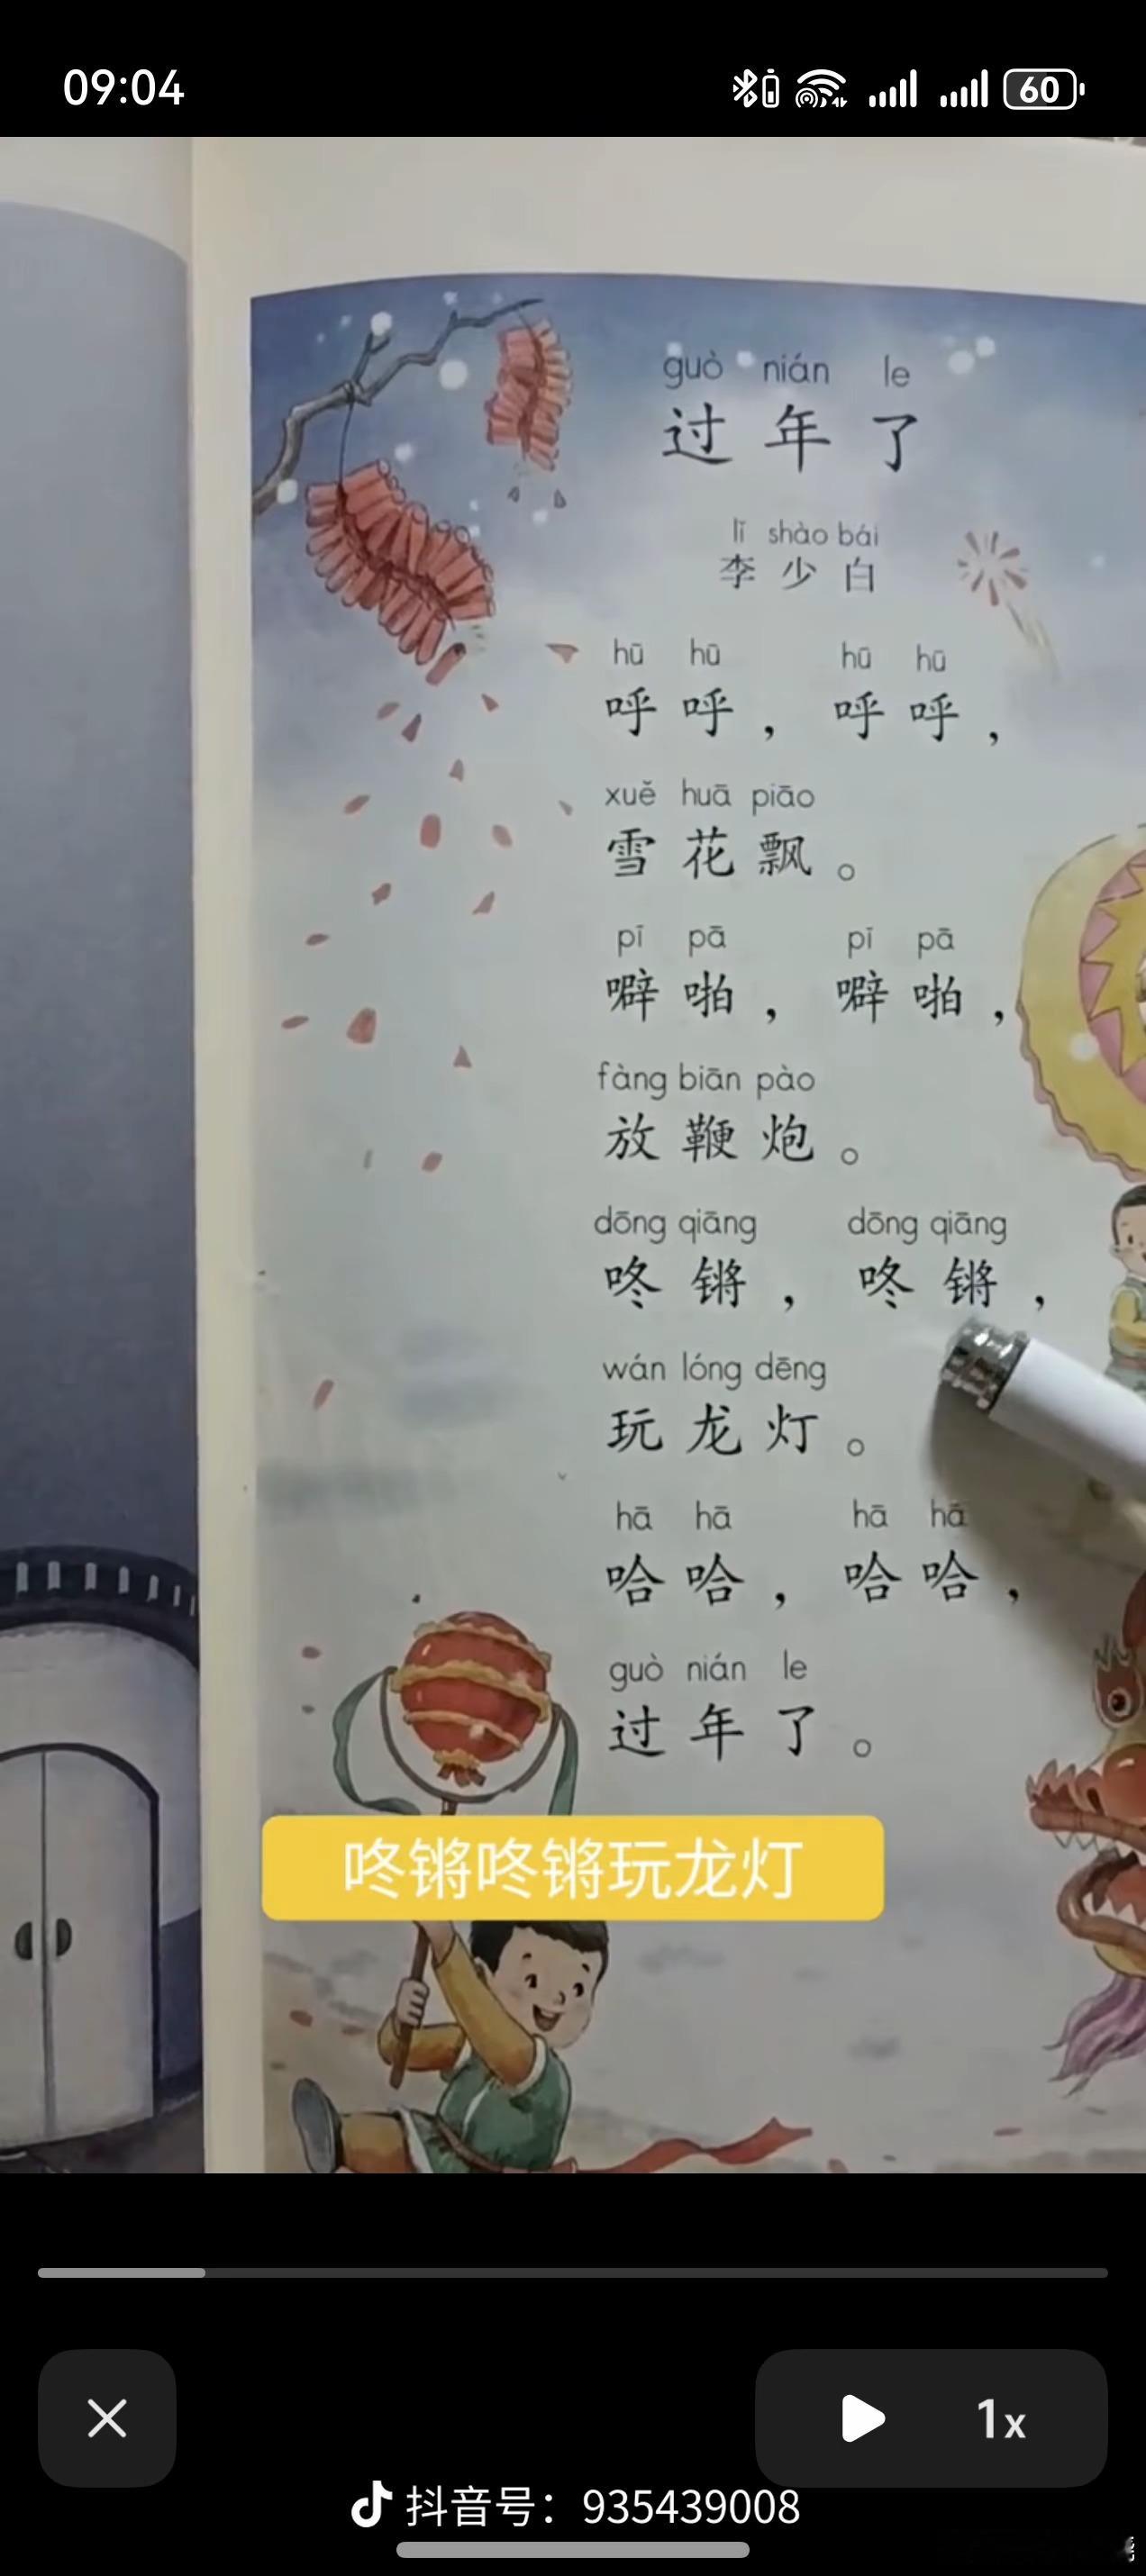 09:04
60
guò nián le
过年了
lǐ shào bái
李少白
hū hū hū hū
呼呼，呼呼，
xuě huā piāo
雪花飘。
pī pā pī pā
噼啪，噼啪，
fàng biān pào
放鞭炮。
dōng qiāng dōng qiāng
咚锵，咚锵，
wán lóng dēng
玩龙灯。
hā hā hā hā
哈哈，哈哈，
guò nián le
过年了。
咚锵咚锵玩龙灯
1x
抖音号：935439008